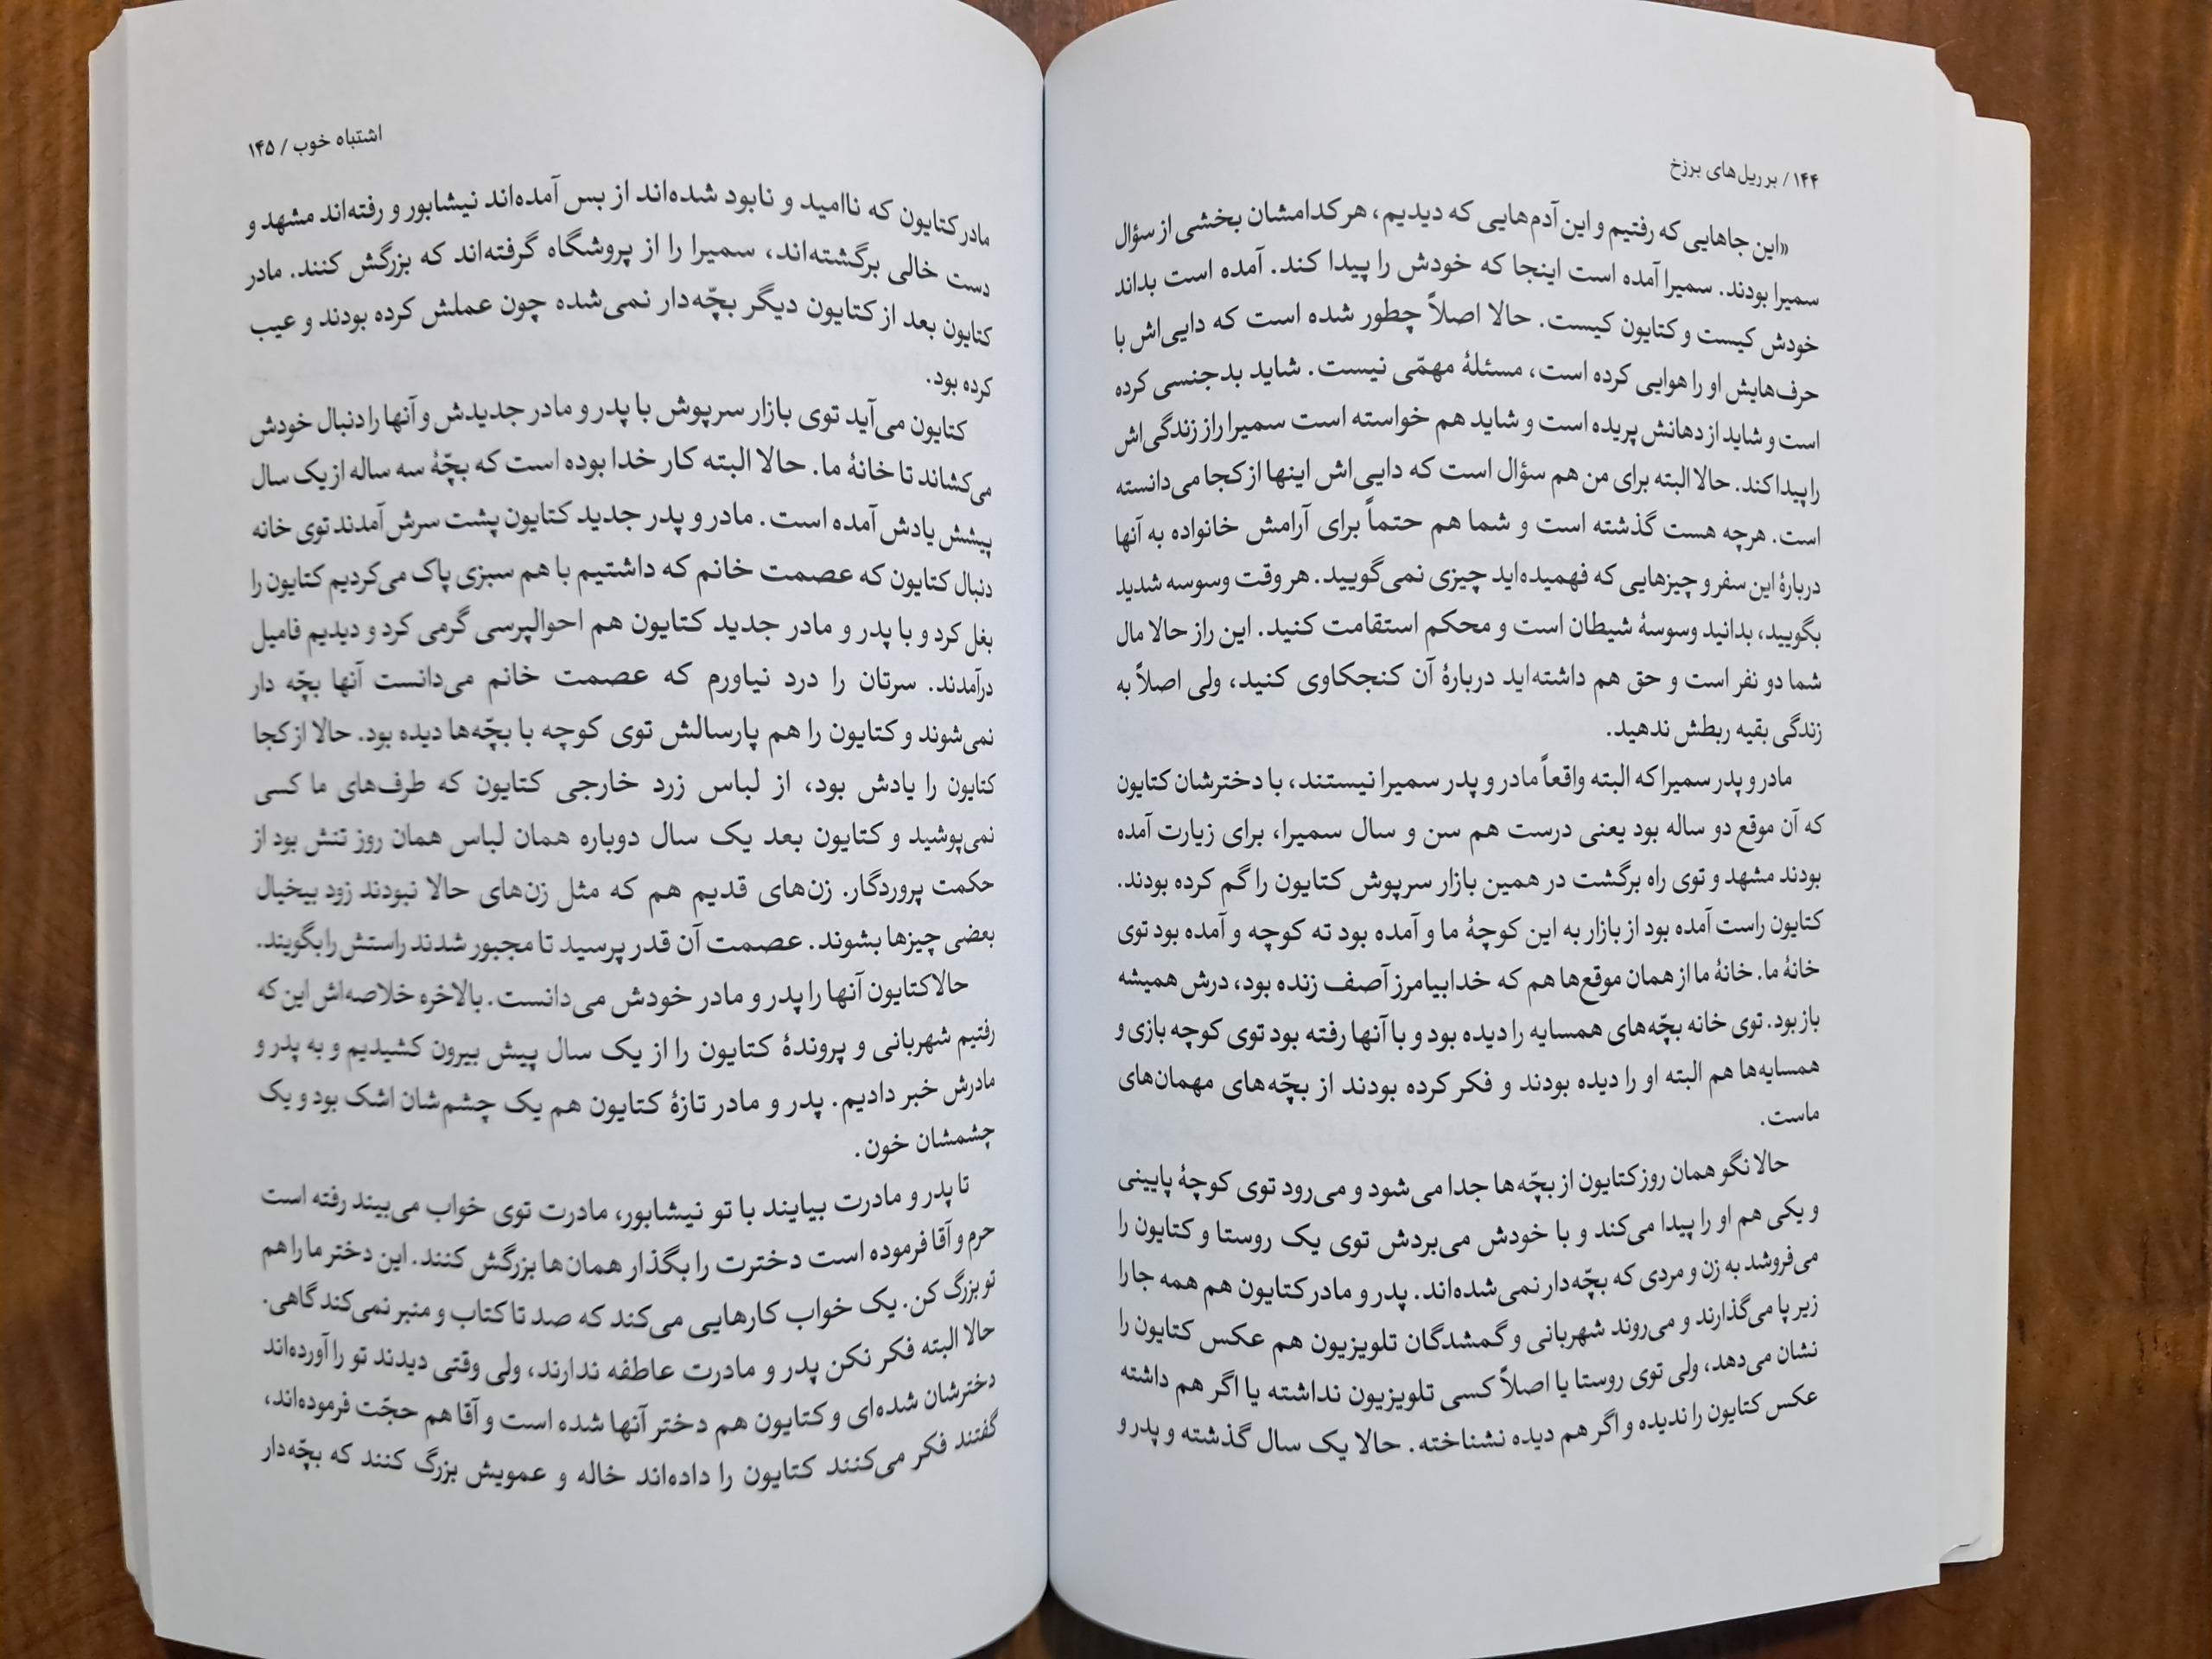 ۱۴۴ / بر ریل‌های برزخ
«این جاهایی که رفتیم و این آدم‌هایی که دیدیم، هرکدامشان بخشی از سؤال
سمیرا بودند. سمیرا آمده است اینجا که خودش را پیدا کند. آمده است بداند
خودش کیست و کتایون کیست. حالا اصلاً چطور شده است که دایی‌اش با
حرف‌هایش او را هوایی کرده است، مسئلهٔ مهمّی نیست. شاید بدجنسی کرده
است و شاید از دهانش پریده است و شاید هم خواسته است سمیرا راز زندگی‌اش
را پیدا کند. حالا البته برای من هم سؤال است که دایی‌اش اینها از کجا می‌دانسته
است. هرچه هست گذشته است و شما هم حتماً برای آرامش خانواده به آنها
دربارهٔ این سفر و چیزهایی که فهمیده‌اید چیزی نمی‌گویید. هر وقت وسوسه شدید
بگویید، بدانید وسوسهٔ شیطان است و محکم استقامت کنید. این راز حالا مال
شما دو نفر است و حق هم داشته‌اید دربارهٔ آن کنجکاوی کنید، ولی اصلاً به
زندگی بقیه ربطش ندهید.
مادر و پدر سمیرا که البته واقعاً مادر و پدر سمیرا نیستند، با دخترشان کتایون
که آن موقع دو ساله بود یعنی درست هم سن و سال سمیرا، برای زیارت آمده
بودند مشهد و توی راه برگشت در همین بازار سرپوش کتایون را گم کرده بودند.
کتایون راست آمده بود از بازار به این کوچهٔ ما و آمده بود ته کوچه و آمده بود توی
خانهٔ ما. خانهٔ ما از همان موقع‌ها هم که خدابیامرز آصف زنده بود، درش همیشه
باز بود. توی خانه بچّه‌های همسایه را دیده بود و با آنها رفته بود توی کوچه بازی و
همسایه‌ها هم البته او را دیده بودند و فکر کرده بودند از بچّه‌های مهمان‌های
ماست.
حالا نگو همان روز کتایون از بچّه‌ها جدا می‌شود و می‌رود توی کوچهٔ پایینی
و یکی هم او را پیدا می‌کند و با خودش می‌بردش توی یک روستا و کتایون را
می‌فروشد به زن و مردی که بچّه‌دار نمی‌شده‌اند. پدر و مادر کتایون هم همه جا را
زیر پا می‌گذارند و می‌روند شهربانی و گمشدگان تلویزیون هم عکس کتایون را
نشان می‌دهد، ولی توی روستا یا اصلاً کسی تلویزیون نداشته یا اگر هم داشته
عکس کتایون را ندیده و اگر هم دیده نشناخته. حالا یک سال گذشته و پدر و
اشتباه خوب / ۱۴۵
مادر کتایون که ناامید و نابود شده‌اند از بس آمده‌اند نیشابور و رفته‌اند مشهد و
دست خالی برگشته‌اند، سمیرا را از پروشگاه گرفته‌اند که بزرگش کنند. مادر
کتایون بعد از کتایون دیگر بچّه‌دار نمی‌شده چون عملش کرده بودند و عیب
کرده بود.
کتایون می‌آید توی بازار سرپوش با پدر و مادر جدیدش و آنها را دنبال خودش
می‌کشاند تا خانهٔ ما. حالا البته کار خدا بوده است که بچّهٔ سه ساله از یک سال
پیشش یادش آمده است. مادر و پدر جدید کتایون پشت سرش آمدند توی خانه
دنبال کتایون که عصمت خانم که داشتیم با هم سبزی پاک می‌کردیم کتایون را
بغل کرد و با پدر و مادر جدید کتایون هم احوالپرسی گرمی کرد و دیدیم فامیل
درآمدند. سرتان را درد نیاورم که عصمت خانم می‌دانست آنها بچّه دار
نمی‌شوند و کتایون را هم پارسالش توی کوچه با بچّه‌ها دیده بود. حالا از کجا
کتایون را یادش بود، از لباس زرد خارجی کتایون که طرف‌های ما کسی
نمی‌پوشید و کتایون بعد یک سال دوباره همان لباس همان روز تنش بود از
حکمت پروردگار. زن‌های قدیم هم که مثل زن‌های حالا نبودند زود بیخیال
بعضی چیزها بشوند. عصمت آن قدر پرسید تا مجبور شدند راستش را بگویند.
حالا کتایون آنها را پدر و مادر خودش می‌دانست. بالاخره خلاصه‌اش این که
رفتیم شهربانی و پروندهٔ کتایون را از یک سال پیش بیرون کشیدیم و به پدر و
مادرش خبر دادیم. پدر و مادر تازهٔ کتایون هم یک چشم‌شان اشک بود و یک
چشمشان خون.
تا پدر و مادرت بیایند با تو نیشابور، مادرت توی خواب می‌بیند رفته است
حرم و آقا فرموده است دخترت را بگذار همان‌ها بزرگش کنند. این دختر ما را هم
تو بزرگ کن. یک خواب کارهایی می‌کند که صد تا کتاب و منبر نمی‌کند گاهی.
حالا البته فکر نکن پدر و مادرت عاطفه ندارند، ولی وقتی دیدند تو را آورده‌اند
دخترشان شده‌ای و کتایون هم دختر آنها شده است و آقا هم حجّت فرموده‌اند،
گفتند فکر می‌کنند کتایون را داده‌اند خاله و عمویش بزرگ کنند که بچّه‌دار